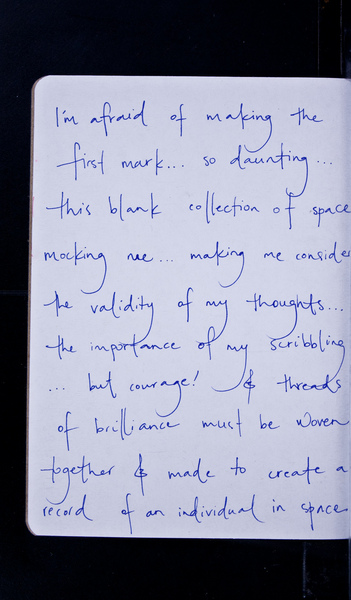 I'm afraid of making the
first mark... so daunting...
this blank collection of space
mocking me... making me consider
the validity of my thoughts...
the importance of my scribbling
... but courage! & threads
of brilliance must be woven
together & made to create a
record of an individual in space